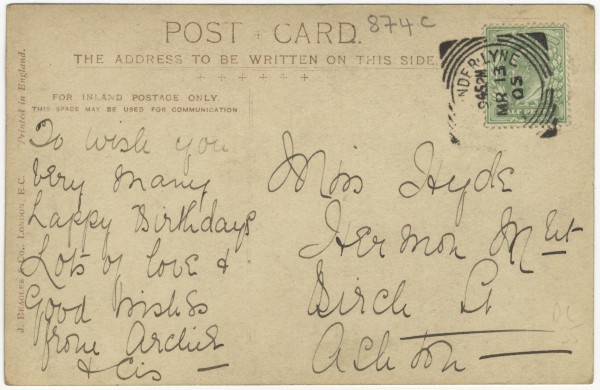 POST CARD.
874 C
THE ADDRESS TO BE WRITTEN ON THIS SIDE.
FOR INLAND POSTAGE ONLY.
THIS SPACE MAY BE USED FOR COMMUNICATION
NDER-LYNE
9.45PM
MR 13
05
HALF PE
J. BEAGLES & CO., LONDON, E.C.
Printed in England.
To wish you
Very Many
Happy Birthdays
Lots of love &
Good Wishes
from Archie
& Cis
Miss Hyde
Hermon Mnt
Birch St
Ashton